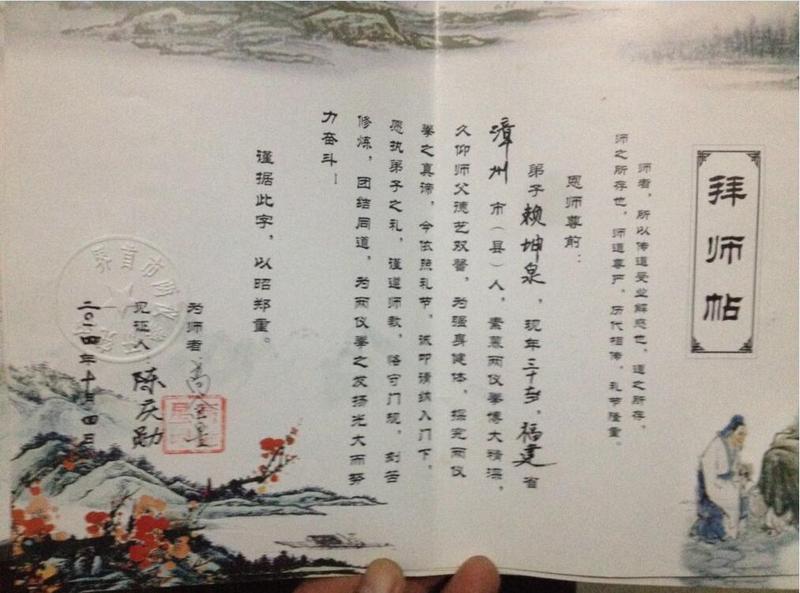 拜师帖
师者，所以传道受业解惑也，道之所存，
师之所存也，师道尊严，历代相传，礼节隆重。
恩师尊前：
弟子赖坤泉，现年三十岁，福建省
漳州市（县）人，素慕两仪拳博大精深，
久仰师父德艺双馨，为强身健体，探究两仪
拳之真谛，今依照礼节，诚叩请纳入门下，
愿执弟子之礼，谨遵师教，恪守门规，刻苦
修炼，团结同道，为两仪拳之发扬光大而努
力奋斗！
谨据此字，以昭郑重。
为师者：
见证人：陈庆勋
二〇一四年十月四日